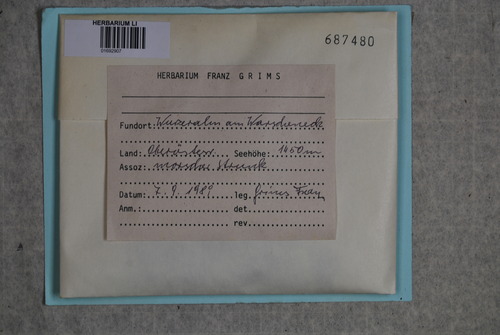 HERBARIUM LI
687480
HERBARIUM FRANZ GRIMS
Fundort: Wurzeralm am Warscheneck
Land: Oberösterr. Seehöhe: 1450m
Assoz: morscher Strunk
Datum: 7.9.1989 leg. Grims Franz
Anm.: det.
rev.